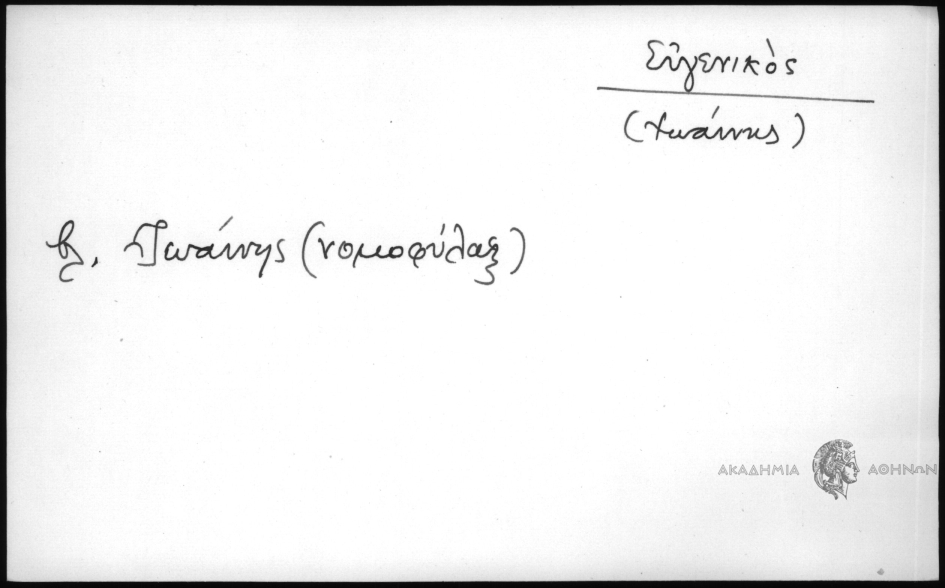 Εὐγενικὸς
(Ἰωάννης)
βλ. Ἰωάννης (νομοφύλαξ)
ΑΚΑΔΗΜΙΑ ΑΘΗΝΩΝ